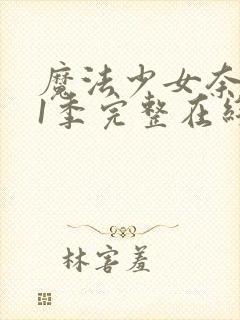 魔法少女奈
1季完整在线
林害羞